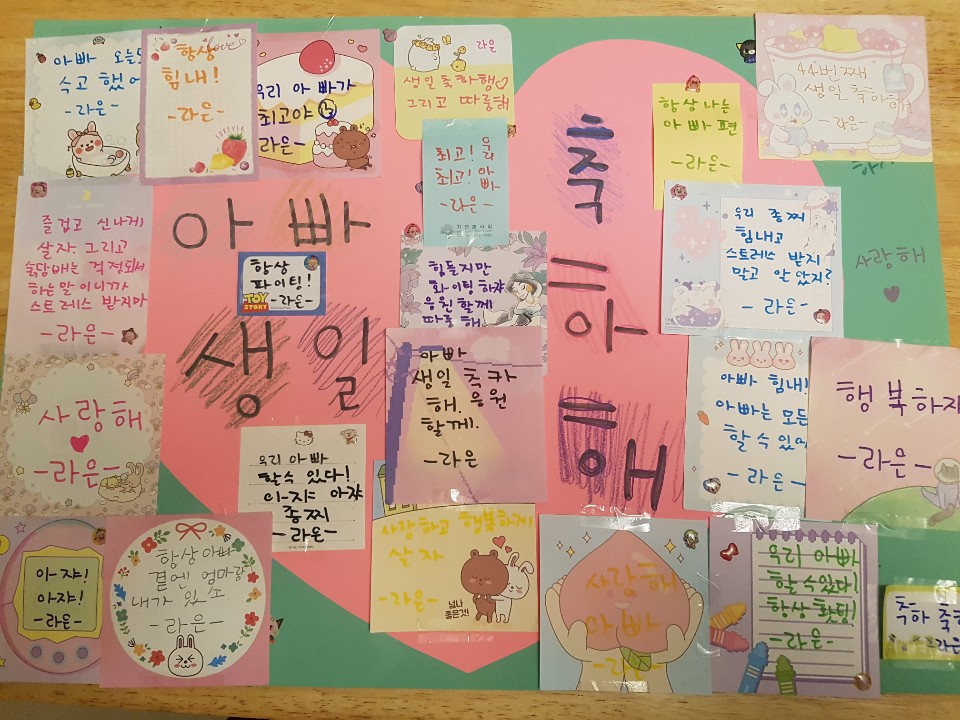 아빠
생일
축
하
해
아빠 오늘도
수고 했어
-라은-
항상
힘내!
-라은-
FOREVER
우리 아빠가
최고야
라은-
라은
생일 축하행♡
그리고 따릉해
최고! 우리
최고! 아빠
-라은-
항상 나는
아빠 편
-라은-
44번째
생일 축하해
-라은-
즐겁고 신나게
살자. 그리고
술담배는 걱정되서
하는 말 이니까
스트레스 받지마
-라은-
항상
파이팅!
-라은-
TOY
STORY
힘들지만
화이팅 하쟈
응원할게
따릉해
우리 종찌
힘내고
스트레스 받지
말고 알았지?
-라은-
사랑해
사랑해
-라은-
우리 아빠
할수 있다!
아쟈 아쟈
종찌
-라은-
아빠
생일 축카
해. 응원
할께.
-라은
아빠 힘내!
아빠는 모든
할 수 있어
-라은-
행복하자
-라은-
아쟈!
아쟈!
-라은-
항상 아빠
곁엔 엄마랑
내가 있소
-라은-
사랑하고 행복하게
살자
-라은-
넘나
좋은것!
사랑해
아빠
우리 아빠
할수있다!
항상 홧팅!
-라은-
축하 축하
라은